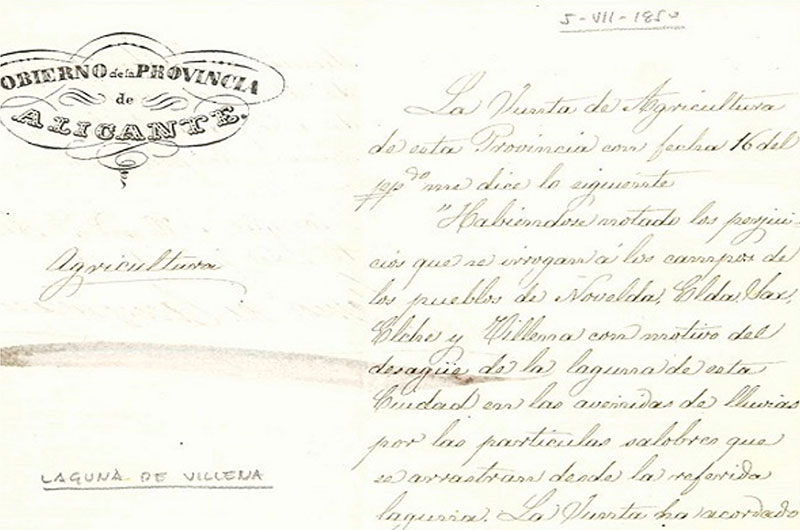 5-VII-1850
GOBIERNO de la PROVINCIA
de
ALICANTE.
Agricultura
LAGUNA DE VILLENA
La Junta de Agricultura
de esta Provincia con fecha 16 del
pp.do me dice lo siguiente
"Habiendose notado los perjui-
cios que se irrogan á los campos de
los pueblos de Novelda, Elda, Sax,
Elche y Villena con motivo del
desagüe de la laguna de esta
Ciudad en las avenidas de lluvias
por las particulas salobres que
se arrastran desde la referida
laguna. La Junta ha acordado